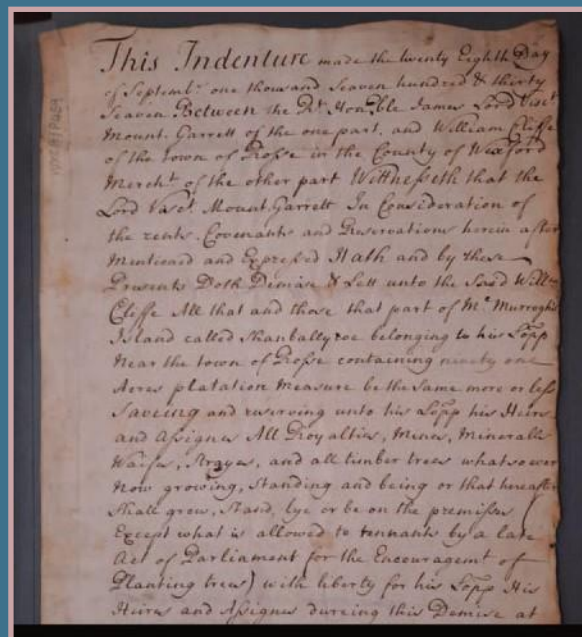 This Indenture made the twenty Eighth Day
of Septembr. one thousand Seaven hundred & thirty
Seaven Between the Rt. Honble James Lord Visct.
Mount-Garrett of the one part, and William Cliffe
of the town of Rosse in the County of Wexford
Mercht. of the other part Wittnesseth that the
Lord Visct. Mount Garrett In Consideration of
the rents. Covenants and Reservations herein after
Mentioned and Expressed Hath and by these
Presents Doth Demise & Lett unto the Said Willm
Cliffe All that and those that part of Mc. Murroghs
Island called Shanballyroe belonging to his Lopp
Near the town of Rosse containing ninety one
Acres platation Measure be the Same more or less
Saveing and reserving unto his Lopp his Heirs
and Assignes All Royalties, Mines, Mineralls
Waifes, Strayes, and all timber trees whatsoever
Now growing, Standing and being or that hereafter
Shall grow, Stand, lye or be on the premisses (
Except what is allowed to tennants by a late
Act of Parliament for the Encouragemt. of
Planting trees) with liberty for his Lopp His
Heires and Assignes dureing this Demise at